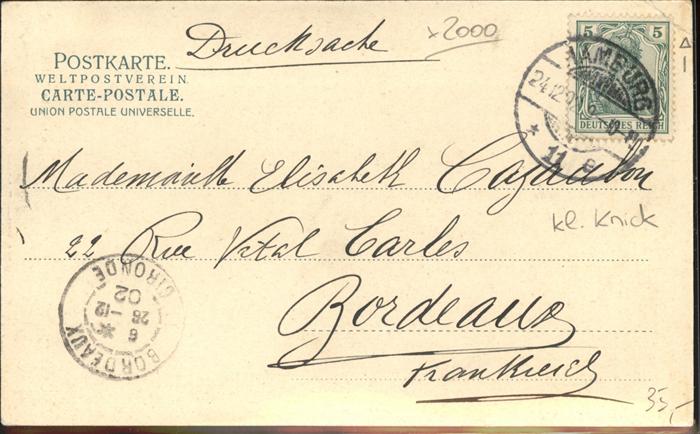 Drucksache
x2000
POSTKARTE.
WELTPOSTVEREIN.
CARTE-POSTALE.
UNION POSTALE UNIVERSELLE.
5 5
DEUTSCHES REICH
HAMBURG
24.12.
11 e
Mademoiselle Elisabeth Cazaubon
kl. Knick
22 Rue Vital Carles
Bordeaux
Frankreich
BORDEAUX
GIRONDE
6
26 -12
02
35,-